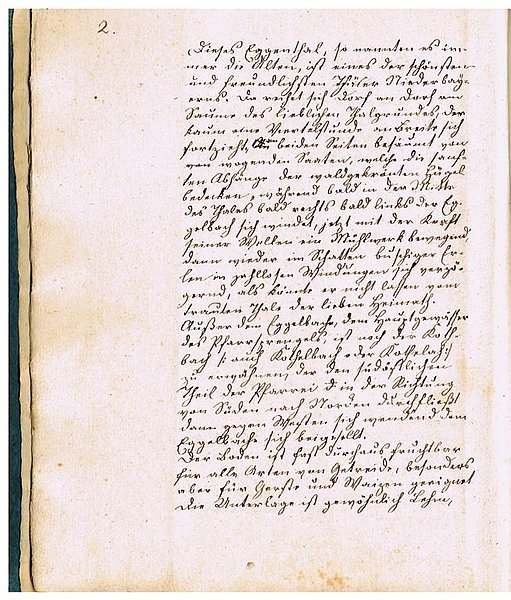 2.
Dieses Eggenthal, so nannten es im-
mer die Alten, ist eines der schönsten
und freundlichsten Thäler Niederbay-
erns. Da reiht sich Dorf an Dorf am
Saume des lieblichen Thalgrundes, der
kaum eine Viertelstunde an Breite sich
fortzieht, an beiden Seiten besäumt von
von wogenden Saaten, welche die sanf-
ten Abhänge der waldgekrönten Hügel
bedecken, während bald in der Mitte
des Thales bald rechts bald links der Eg-
gelbach sich wendet, jetzt mit der Kraft
seiner Wellen ein Mühlwerk bewegend
dann wieder im Schatten buschiger Er-
len in zahllosen Windungen sich verzö-
gernd, als könnte er nicht lassen vom
trauten Thale der lieben Heimath.
Außer dem Eggelbache, dem Hauptgewässer
des Pfarrsprengels, ist noch der Koth-
bach /: auch Köthelbach oder Kothelach :/
zu erwähnen, der den südöstlichen
Theil der Pfarrei in der Richtung
von Süden nach Norden durchfließt
dann gegen Westen sich wendend dem
Eggelbache sich beigesellt.
Der Boden ist fast durchaus fruchtbar
für alle Arten von Getreide, besonders
aber für Gerste und Waizen geeignet
Die Unterlage ist gewöhnlich Lehm,